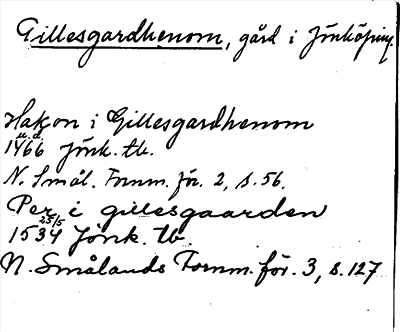 Gillesgardhenom, gård i Jönköping.
Hakon i Gillesgardhenom
u. d.
1466 Jönk. tb.
N. Smål. Fornm. för. 2, s. 56.
Per i gillesgaarden
25/5
1534 Jönk. tb.
N. Smålands Fornm. för. 3, s. 127